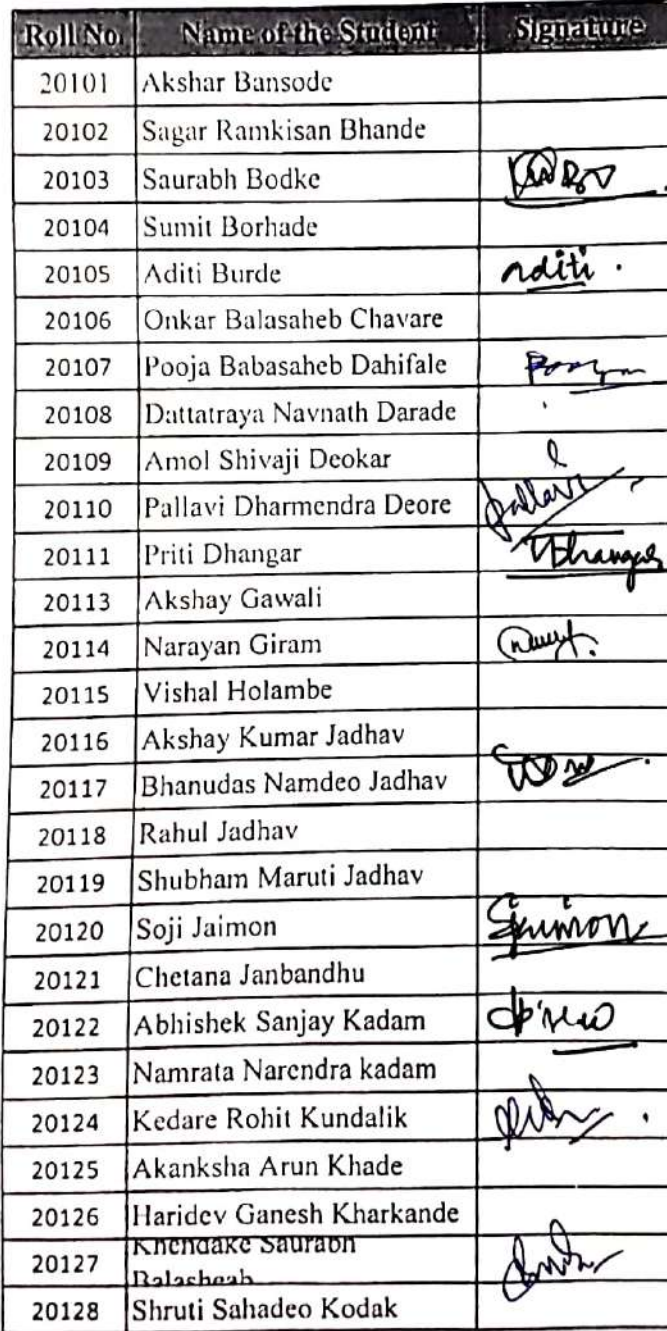 Roll No. Name of the Student Signature
20101 Akshar Bansode
20102 Sagar Ramkisan Bhande
20103 Saurabh Bodke
20104 Sumit Borhade
20105 Aditi Burde Aditi .
20106 Onkar Balasaheb Chavare
20107 Pooja Babasaheb Dahifale
20108 Dattatraya Navnath Darade
20109 Amol Shivaji Deokar
20110 Pallavi Dharmendra Deore Pallavi
20111 Priti Dhangar
20113 Akshay Gawali
20114 Narayan Giram
20115 Vishal Holambe
20116 Akshay Kumar Jadhav
20117 Bhanudas Namdeo Jadhav
20118 Rahul Jadhav
20119 Shubham Maruti Jadhav
20120 Soji Jaimon
20121 Chetana Janbandhu
20122 Abhishek Sanjay Kadam
20123 Namrata Narendra kadam
20124 Kedare Rohit Kundalik
20125 Akanksha Arun Khade
20126 Haridev Ganesh Kharkande
20127 Khendake Saurabh
Balasheab
20128 Shruti Sahadeo Kodak